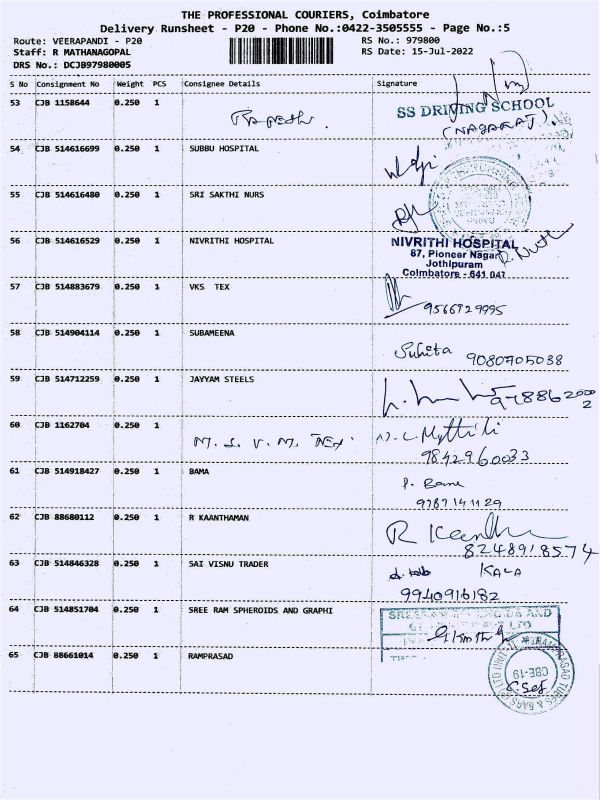 THE PROFESSIONAL COURIERS, Coimbatore
Delivery Runsheet - P20 - Phone No.:0422-3505555 - Page No.:5
Route: VEERAPANDI - P20 RS No.: 979800
Staff: R MATHANAGOPAL RS Date: 15-Jul-2022
DRS No.: DCJB97980005
S No Consignment No Weight PCS Consignee Details Signature
53 CJB 1158644 0.250 1 SS DRIVING SCHOOL
(NAGARAJ).
54 CJB 514616699 0.250 1 SUBBU HOSPITAL
55 CJB 514616480 0.250 1 SRI SAKTHI NURS
56 CJB 514616529 0.250 1 NIVRITHI HOSPITAL NIVRITHI HOSPITAL
67, Pioneer Nagar
Jothipuram
Coimbatore - 641 047
57 CJB 514883679 0.250 1 VKS TEX
9566729995
58 CJB 514904114 0.250 1 SUBAMEENA
Suhita 9080705038
59 CJB 514712259 0.250 1 JAYYAM STEELS
60 CJB 1162704 0.250 1 M. S. V. M. TEX.
9842960033
61 CJB 514918427 0.250 1 BAMA
P. Bama
9787141129
62 CJB 88680112 0.250 1 R KAANTHAMAN
8248918574
63 CJB 514846328 0.250 1 SAI VISNU TRADER KALA
9940916182
64 CJB 514851704 0.250 1 SREE RAM SPHEROIDS AND GRAPHI
65 CJB 88661014 0.250 1 RAMPRASAD
CBE-19